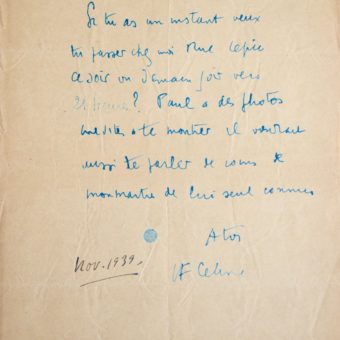 Si tu as un instant veux
tu passer chez moi Rue Lepic
ce soir ou demain soir vers
21 heures? Paul a des photos
inédites à te montrer il voudrait
aussi te parler de coins de
Montmartre de lui seul connus
A toi
LF Celine
Nov. 1939.